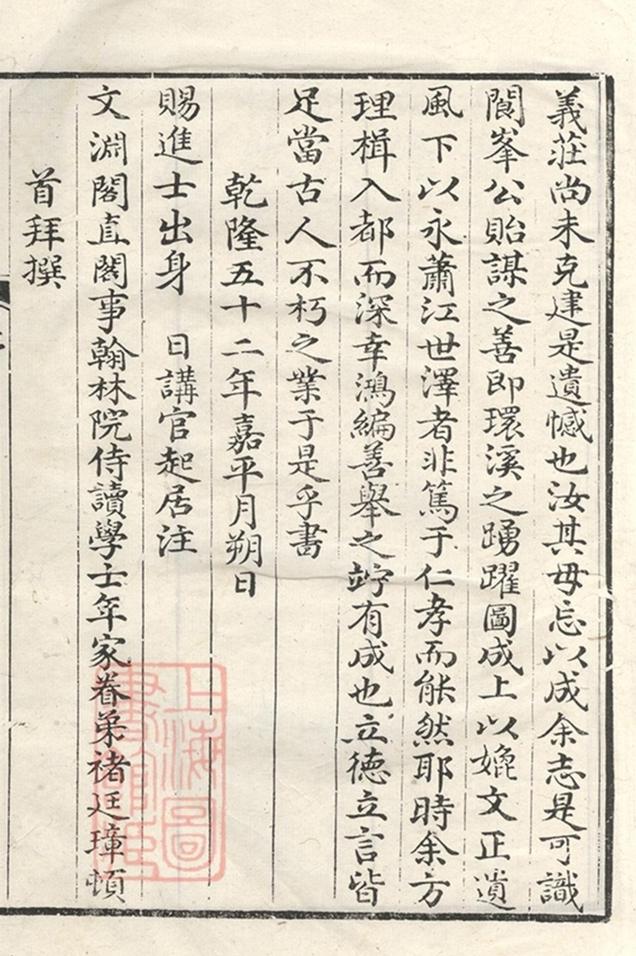 義莊尚未克建是遺憾也汝其毋忘以成余志是可識
閬峯公貽謀之善即環溪之踴躍圖成上以媲文正遺
風下以永蕭江世澤者非篤于仁孝而能然耶時余方
理楫入都而深幸鴻編善舉之竚有成也立德立言皆
足當古人不朽之業于是乎書
乾隆五十二年嘉平月朔日
賜進士出身 日講官起居注
文淵閣直閣事翰林院侍讀學士年家眷弟褚廷璋頓
首拜撰
上海圖
書館藏